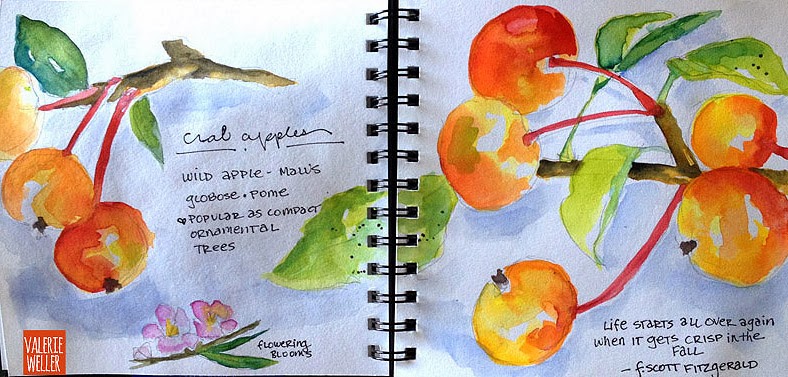 crab apples
wild apple - Malus
globose • Pome
♥ Popular as compact
ornamental
Trees
flowering
Blooms
VALERIE
WELLER
Life starts all over again
when it gets crisp in the
Fall
- F. Scott Fitzgerald